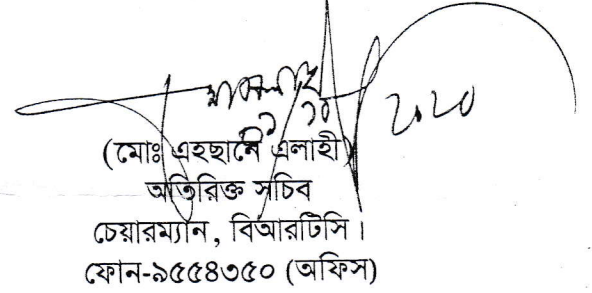 ২০২০
(মোঃ এহছানে এলাহী)
অতিরিক্ত সচিব
চেয়ারম্যান, বিআরটিসি।
ফোন-৯৫৫৪৩৫০ (অফিস)